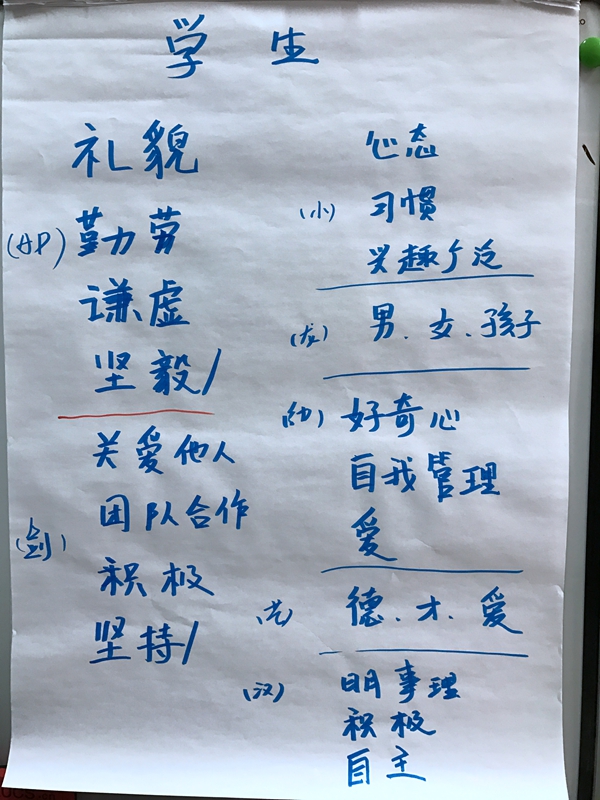 学生
礼貌
(AP) 勤劳
谦虚
坚毅/
关爱他人
团队合作
积极
坚持/
心态
(小) 习惯
兴趣广泛
男、女、孩子
(幼) 好奇心
自我管理
爱
(艺) 德、才、爱
(汉) 明事理
积极
自主